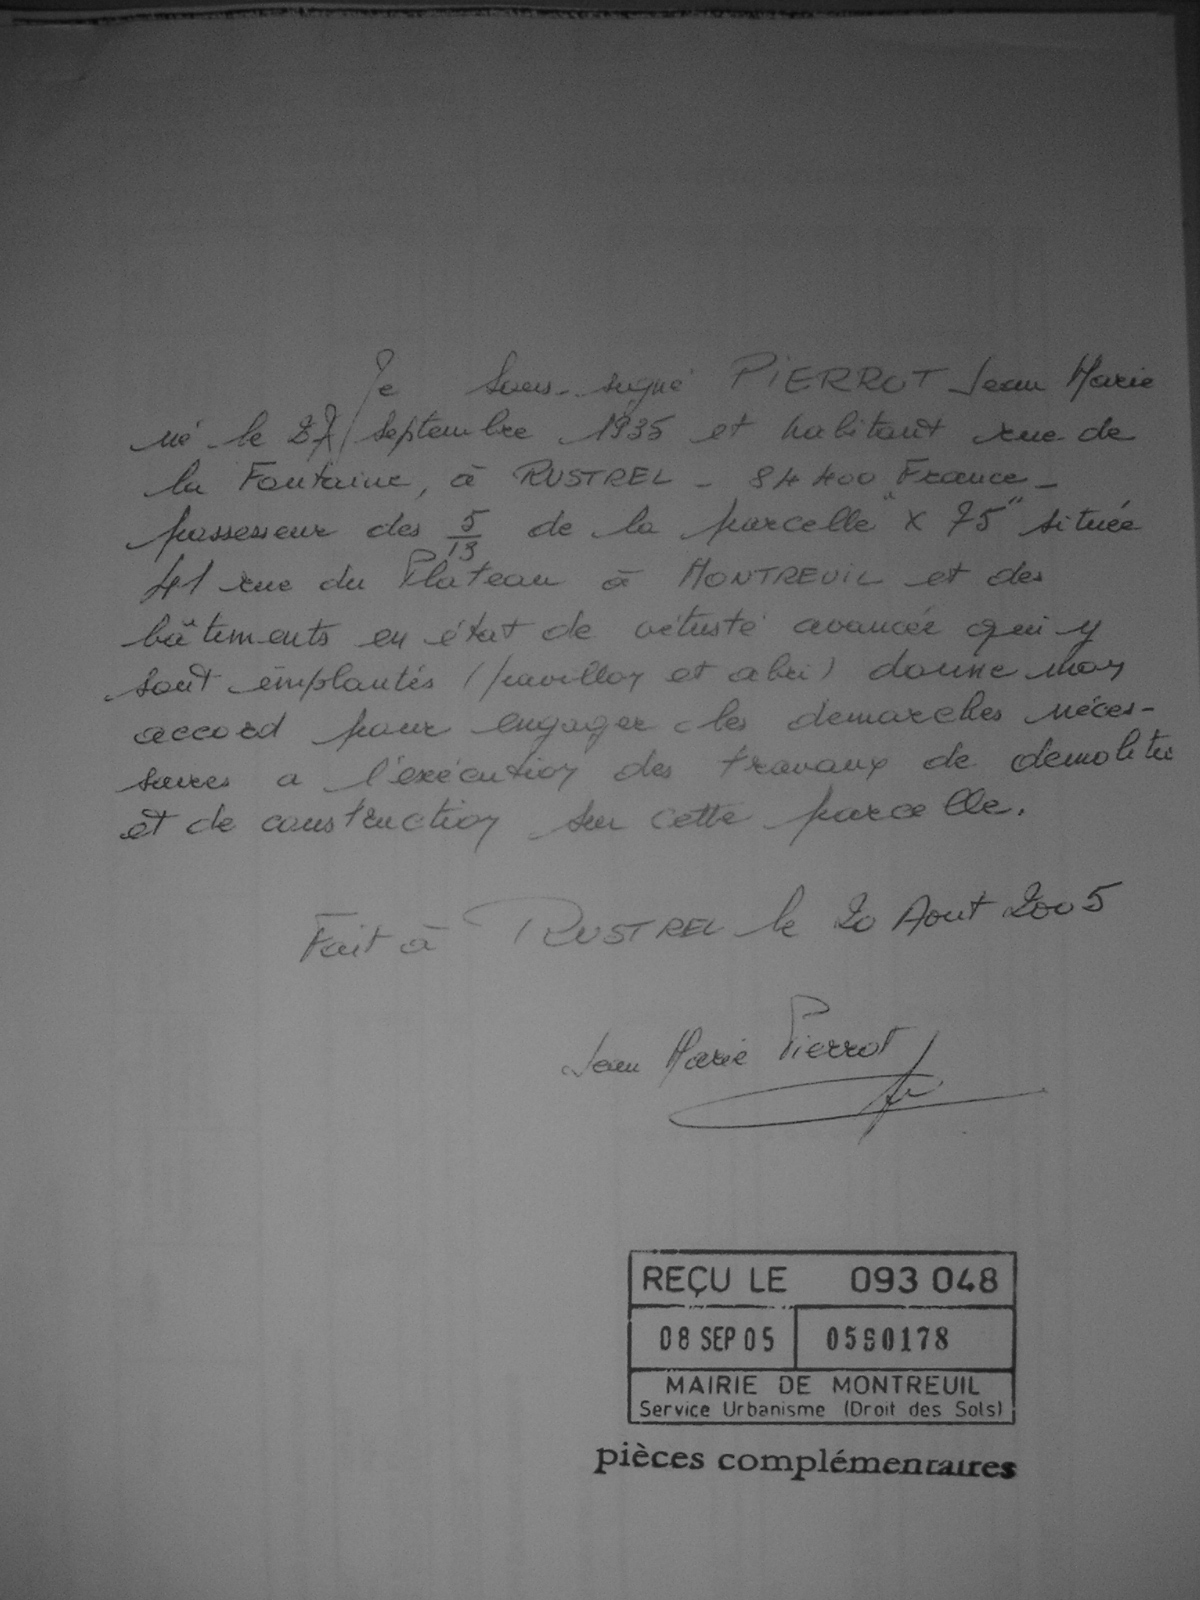 Je sous-signé PIERROT Jean Marie
né le 27 septembre 1935 et habitant rue de
la Fontaine, à RUSTREL - 84400 France -
possesseur des 5/13 de la parcelle "X 75" située
41 rue du Plateau à MONTREUIL et des
bâtiments en état de vétusté avancée qui y
sont implantés (pavillon et abri) donne mon
accord pour engager les demarches néces-
saires a l'exécution des travaux de demolition
et de construction sur cette parcelle.
Fait à RUSTREL le 20 Aout 2005
Jean Marie Pierrot
REÇU LE 093 048
08 SEP 05 0590178
MAIRIE DE MONTREUIL
Service Urbanisme (Droit des Sols)
pièces complémentaires